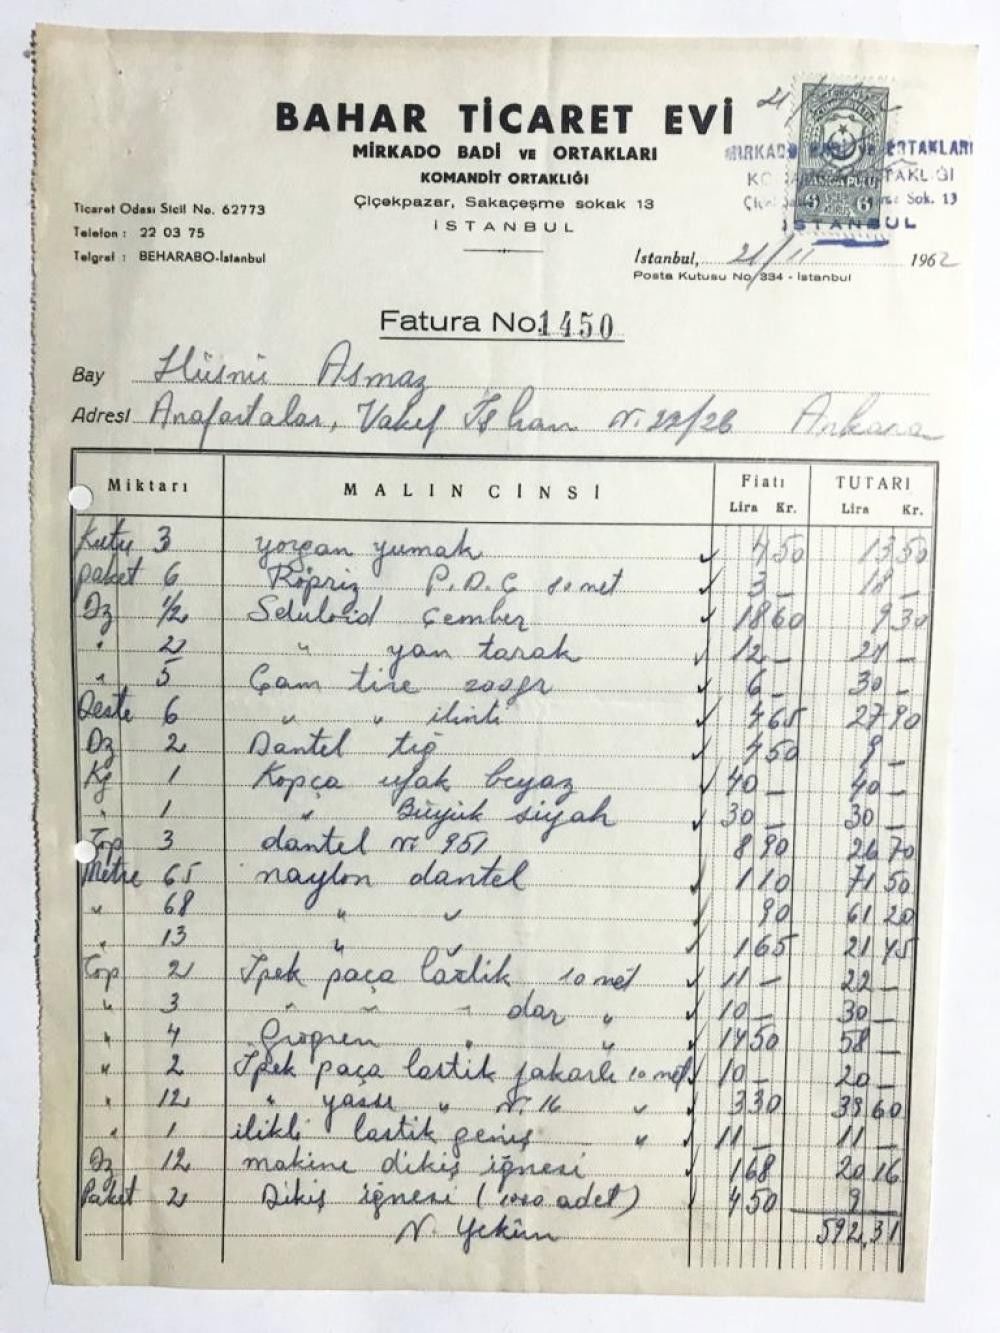 BAHAR TİCARET EVİ
MİRKADO BADİ VE ORTAKLARI
KOMANDİT ORTAKLIĞI
Çiçekpazar, Sakaçeşme sokak 13
İSTANBUL
MİRKADO BADİ VE ORTAKLARI
Sok. 13
İSTANBUL
DAMGA PULU
Ticaret Odası Sicil No. 62773
Telefon : 22 03 75
Telgraf : BEHARABO-İstanbul
İstanbul, 21/11 1962
Posta Kutusu No 334 - İstanbul
Fatura No. 1450
Bay Hüsnü Asmaz
Adresi Anafartalar, Vakıf İş han N. 22/26 Ankara
Miktarı MALIN CİNSİ Fiatı TUTARI
Lira Kr. Lira Kr.
Kutu 3 yorgan yumak 4 50 13 50
paket 6 Röpriz P.D.Ç 10 net 3 _ 18 _
Dz 1/2 Seluloid Çember 18 60 9 30
" 2 " yan tarak 12 _ 24 _
" 5 Çam tire 200gr 6 _ 30 _
Deste 6 " " ilinti 4 65 27 90
Dz 2 Dantel tığ 4 50 9 _
Kg 1 Kopça ufak beyaz 40 _ 40 _
" 1 " Büyük siyah 30 _ 30 _
Top 3 dantel nr 951 8 90 26 70
Metre 65 naylon dantel 1 10 71 50
" 68 " " 90 61 20
" 13 " " 1 65 21 45
Top 2 İpek paça lastik 10 net 11 _ 22 _
" 3 " " " dar " 10 _ 30 _
" 4 Grogren " " 14 50 58 _
" 2 İpek paça lastik jakarlı 10 net 10 _ 20 _
" 12 " yassı " N. 16 " 3 30 39 60
" 1 ilikli lastik geniş " 11 _ 11 _
Dz 12 makine dikiş iğnesi 1 68 20 16
Paket 2 Dikiş iğnesi (1000 adet) 4 50 9 _
N. Yekûn 592,31